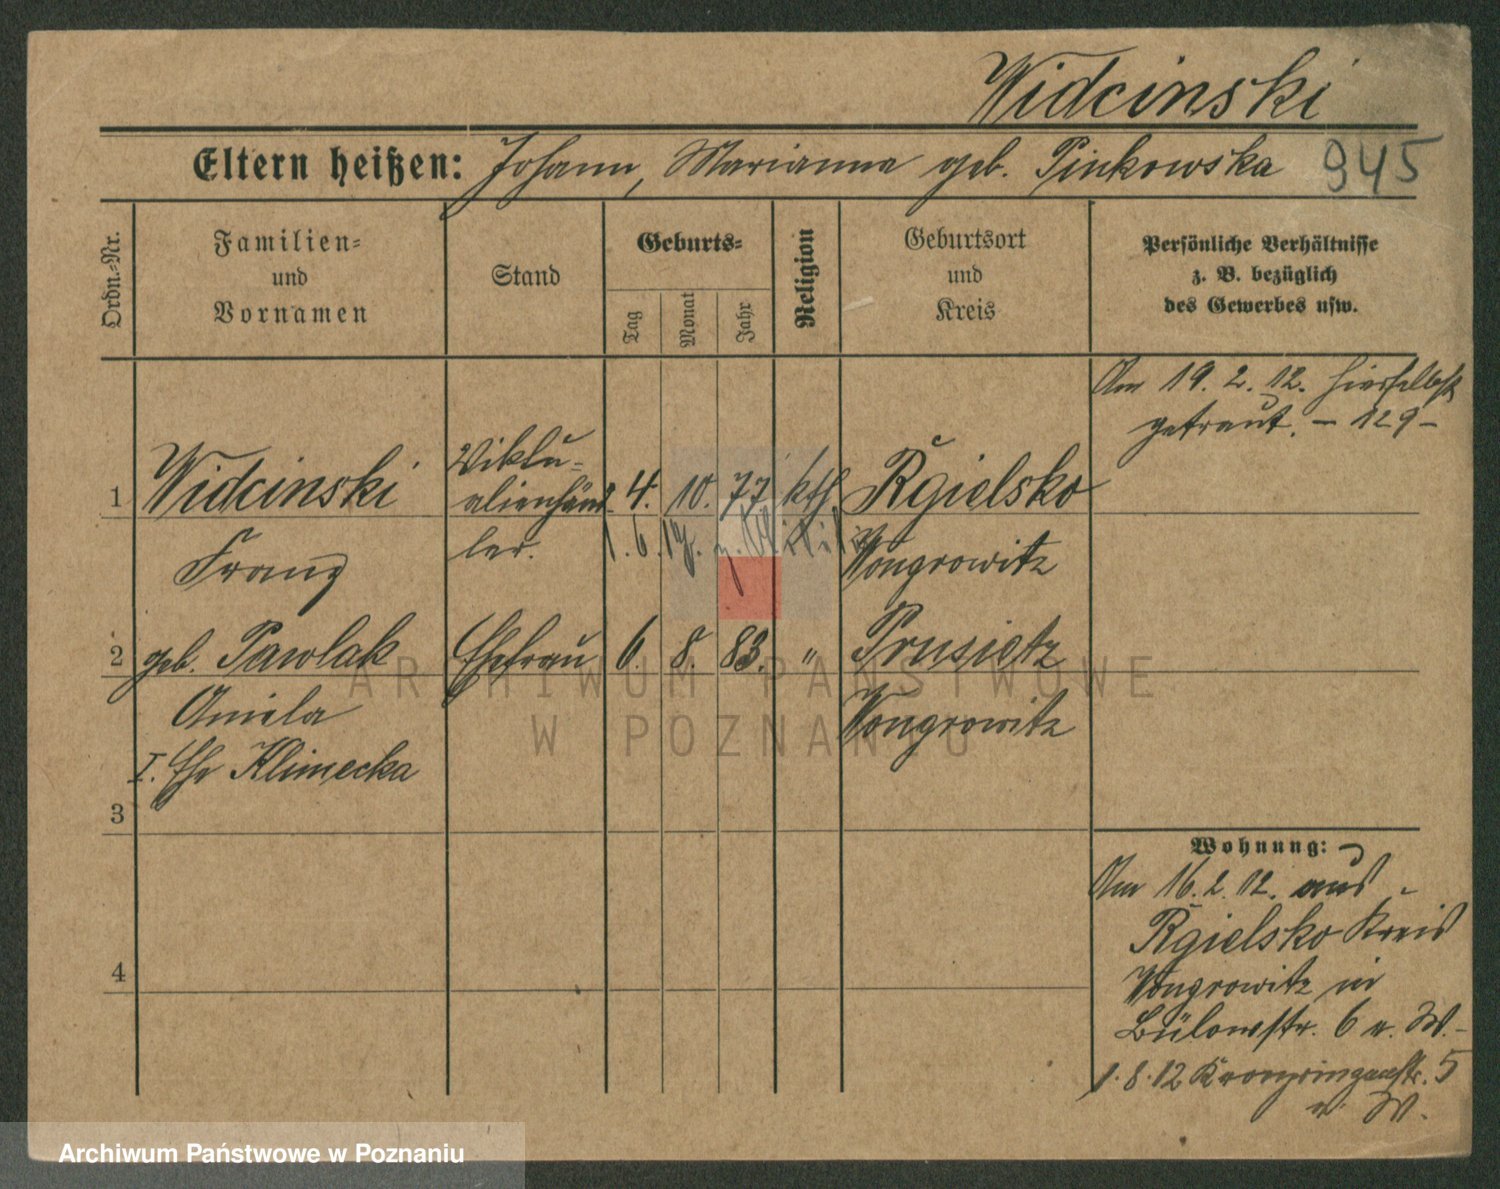 Widcinski
Eltern heißen: Johann, Marianna geb. Pinkowska 945
Ordn.-Nr.
Familien-
und
Vornamen
Stand
Geburts-
Tag
Monat
Jahr
Religion
Geburtsort
und
Kreis
Persönliche Verhältnisse
z. B. bezüglich
des Gewerbes usw.
Am 19. 2. 12. hierselbst
getraut. – 129 –
1 Widcinski Viktu- 4. 10. 77 kth Rgielsko
alienhänd-
Franz ler. Wongrowitz
2 geb. Pawlak Ehefrau 6. 8. 83. " Prusietz
Aniela Wongrowitz
I. Ehe Klimecka
3
4
Wohnung:
Am 16. 2. 12. aus
Rgielsko Kreis
Wongrowitz in
Bülowstr. 6 n. W.
1. 8. 12 Kronprinzenstr. 5
n. W.
ARCHIWUM PAŃSTWOWE
W POZNANIU
Archiwum Państwowe w Poznaniu